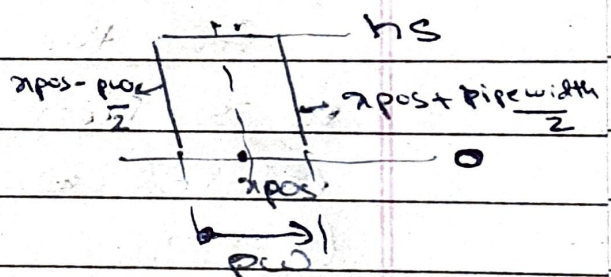 hs
xpos - pw/2
xpos + pipewidth/2
xpos
0
pw